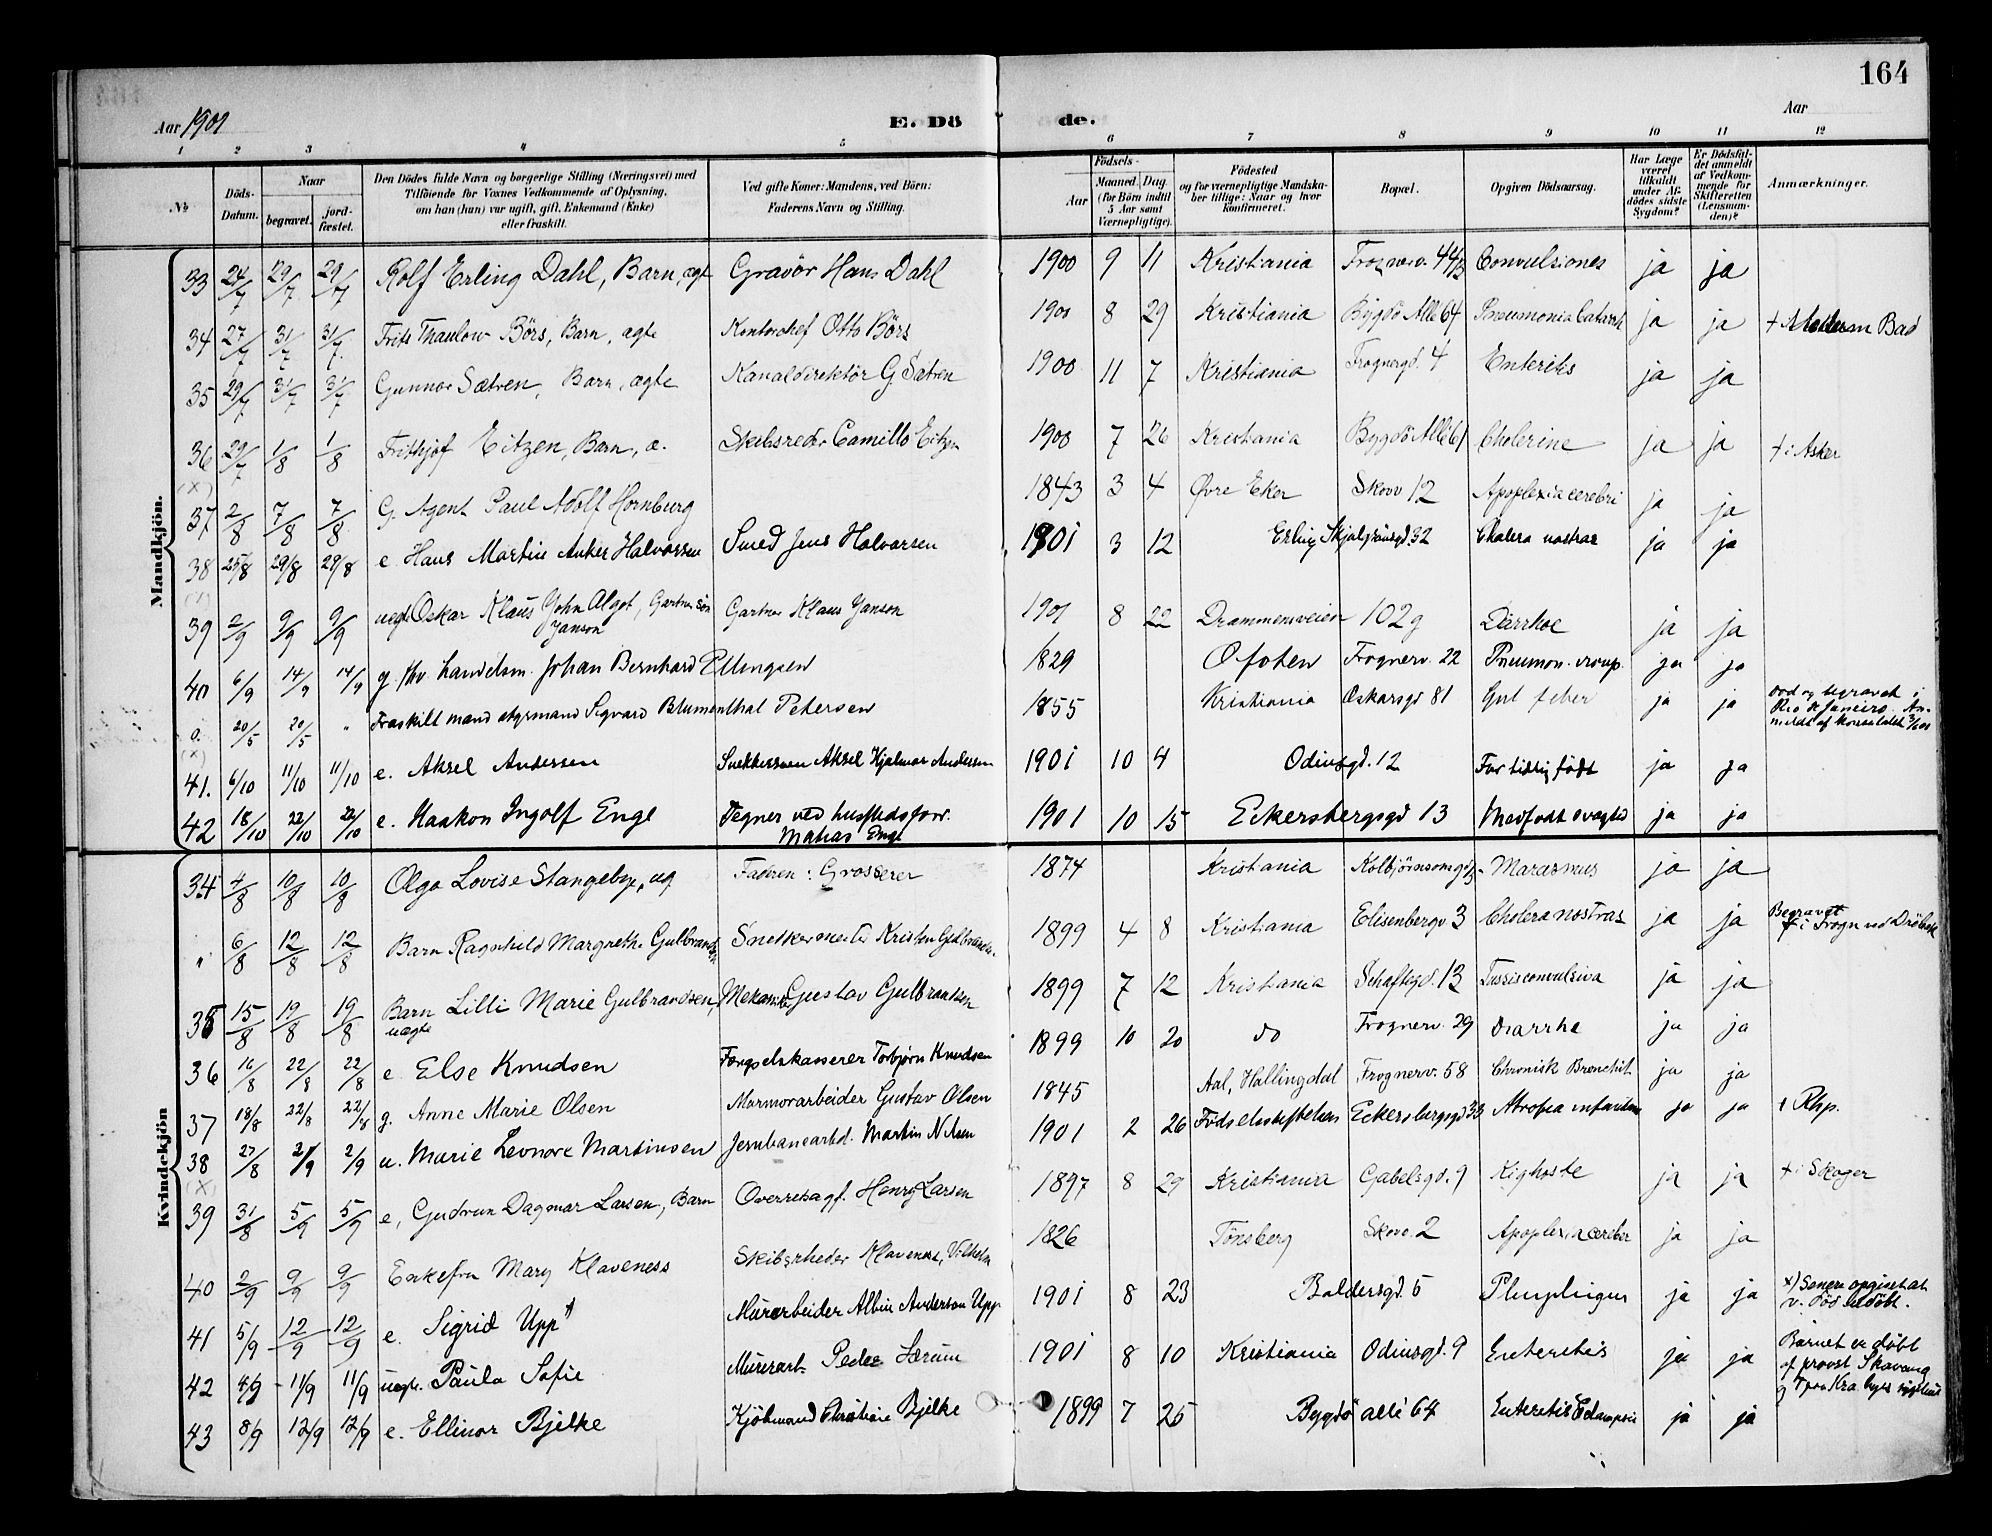 164
Aar 1901
E. Dö de.
Aar
1 2 3 4 5 6 7 8 9 10 11 12
№ Döds-Datum. Naar begravet. jordfæstet. Den Dödes fulde Navn og borgerlige Stilling (Næringsvei) med Tilföiende for Voxnes Vedkommende af Oplysning, om han (hun) var ugift, gift, Enkemand (Enke) eller fraskilt. Ved gifte Koner: Mandens, ved Börn: Faderens Navn og Stilling. Födsels- Aar Maaned. Dag. (for Börn indtil 5 Aar samt Værnepligtige). Födested og for værnepligtige Mandskaber tillige: Naar og hvor konfirmeret. Bopæl. Opgiven Dödsaarsag. Har Læge været tilkaldt under Afdödes sidste Sygdom? Er Dödsfaldet anmeldt af Vedkommende for Skifteretten (Lensmanden)? Anmærkninger.
Mandkjön.
33 24/7 29/7 29/7 Rolf Erling Dahl, Barn, ægt Gravör Hans Dahl 1900 9 11 Kristiania Frognerv. 44/3 Convulsiones ja ja
34 27/7 31/7 31/7 Frits Thaulow Börs, Barn, ægte Kontorchef Otto Börs 1900 8 29 Kristiania Bygdö Alle 64 Pneumonia Catarrh ja ja + Modum Bad
35 29/7 31/7 31/7 Gunnar Sætren, Barn, ægte Kanaldirektör G Sætren 1900 11 7 Kristiania Frognergd. 4 Enteritis ja ja
36 29/7 1/8 1/8 Frithjof Eitzen, Barn, æ. Skibsreder Camillo Eitzen 1900 7 26 Kristiania Bygdö Alle 61 Cholerine ja ja + i Asker
(X)
37 2/8 7/8 7/8 G. Agent Paul Adolf Hornburg 1843 3 4 Øvre Eker Skovv 12 Apoplexia cerebri ja ja
38 25/8 29/8 29/8 e. Hans Martin Anker Halvorsen Smed Jens Halvorsen 1901 3 12 Erling Skjalgsönsgd. 32 Cholera nostras ja ja
39 2/9 9/9 9/9 uægt. Oskar Klaus John Algot, Gartner sön Janson Gartner Klaus Janson 1901 8 22 Drammensveien 102 g Diarrhoe ja ja
40 6/9 14/9 14/9 g. fhv. handelsm. Johan Bernhard Ellingsen 1829 Ofoten Frognerv. 22 Pneumon. croup. ja ja
o. 20/5 20/5 " Fraskilt mand styrmand Sigvard Blumenthal Petersen 1855 Kristiania Oskarsgd 81 Gul feber ja ja död og begravet i Rio de Janeiro. Anmeldt af Konsulatet
(X)
41. 6/10 11/10 11/10 e. Aksel Andersen Snekkersven Aksel Hjalmar Andersen 1901 10 4 Odinsgd. 12 For tidlig födt ja ja
42 18/10 22/10 22/10 e. Haakon Ingolf Enge Tegner ved husflidsforr. Matias Enge 1901 10 15 Eckersbergsgd 13 Medfödt svaghed ja ja
Kvindekjön
34 4/8 10/8 10/8 Olga Lovise Stangebye, ug Faderen: Grosserer 1874 Kristiania Kolbjörnsensgd 3 Marasmus ja ja
" 6/8 12/8 12/8 Barn Ragnhild Margrethe Gulbrandsen Snekkermester Kristen Gulbrandsen 1899 4 8 Kristiania Elisenbergv 3 Cholera nostras ja ja Begravet i Frogn ved Dröbak
35 15/8 19/8 19/8 Barn Lilli Marie Gulbrandsen, uægte Mekaniker Gustav Gulbrandsen 1899 7 12 Kristiania Schaftegd. 13 Tussis convulsiva ja ja
36 16/8 22/8 22/8 e Else Knudsen Fængselskasserer Torbjørn Knudsen 1899 10 20 do Frognerv. 29 Diarrhe ja ja
37 18/8 22/8 22/8 g. Anne Marie Olsen Marmorarbeider Gustav Olsen 1845 Aal, Hallingdal Frognerv. 58 Chronisk Bronchit ja ja
38 27/8 2/9 2/9 u. Marie Leonore Martinsen Jernbanearbd. Martin Nilsen 1901 2 26 Födselsstiftelsen Eckersbergsgd 33 Atrofia infantum ja ja + Rhp.
(X)
39 31/8 5/9 5/9 e, Gudrun Dagmar Larsen, Barn Overretssagf. Henry Larsen 1897 8 29 Kristiania Gabelsgd. 9 Kighoste ja ja + i Skoger
40 2/9 9/9 9/9 Enkefru Mary Klaveness Skibsrheder Klaveness, Vilhelm 1826 Tönsberg Skovv. 2 Apoplexia cerebri ja ja
41 5/9 12/9 12/9 e. Sigrid Upp Murarbeider Albin Anderson Upp 1901 8 23 Baldersgd. 5 Phemphigus ja ja *) Senere opgivet at v. död udöbt.
42 4/9 11/9 11/9 uægte. Paula Sofie Murerarb. Peder Lærum 1901 8 10 Kristiania Odinsgd. 9 Enteritis ja ja Barnet er döbt af provst Skavang paa Kra. byes sygehus
43 8/9 12/9 12/9 e. Ellinor Bjelke Kjöbmand Christian Bjelke 1899 7 25 Bygdö allé 64 Enteritis Eclampsie ja ja